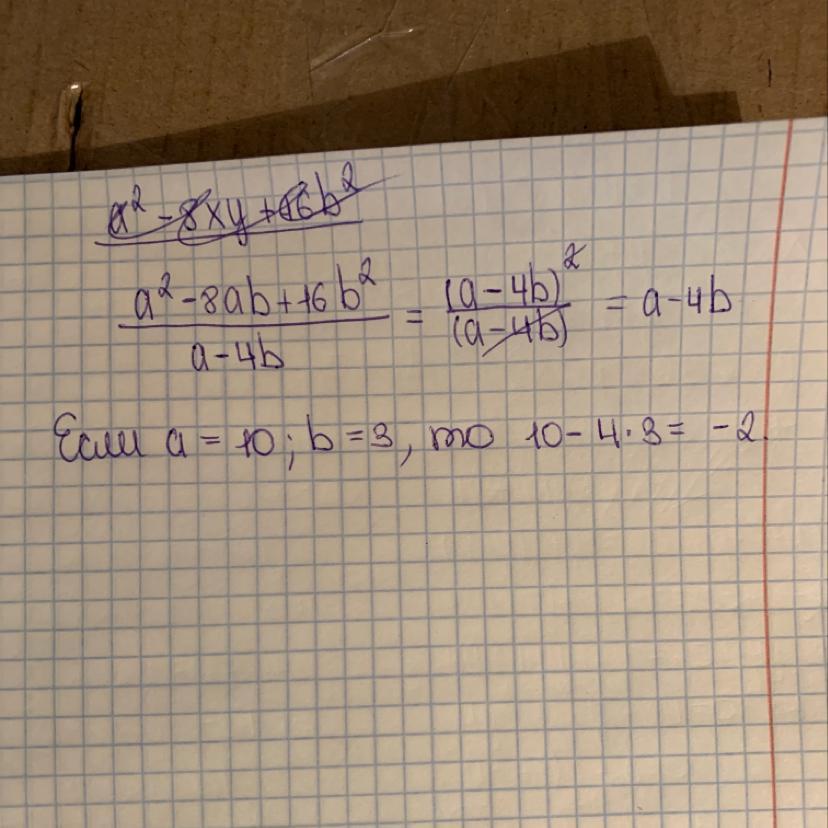 a² - 8xy + 16b²
a² - 8ab + 16b² / a - 4b = (a - 4b)² / (a - 4b) = a - 4b
Если a = 10; b = 3, то 10 - 4·3 = -2.